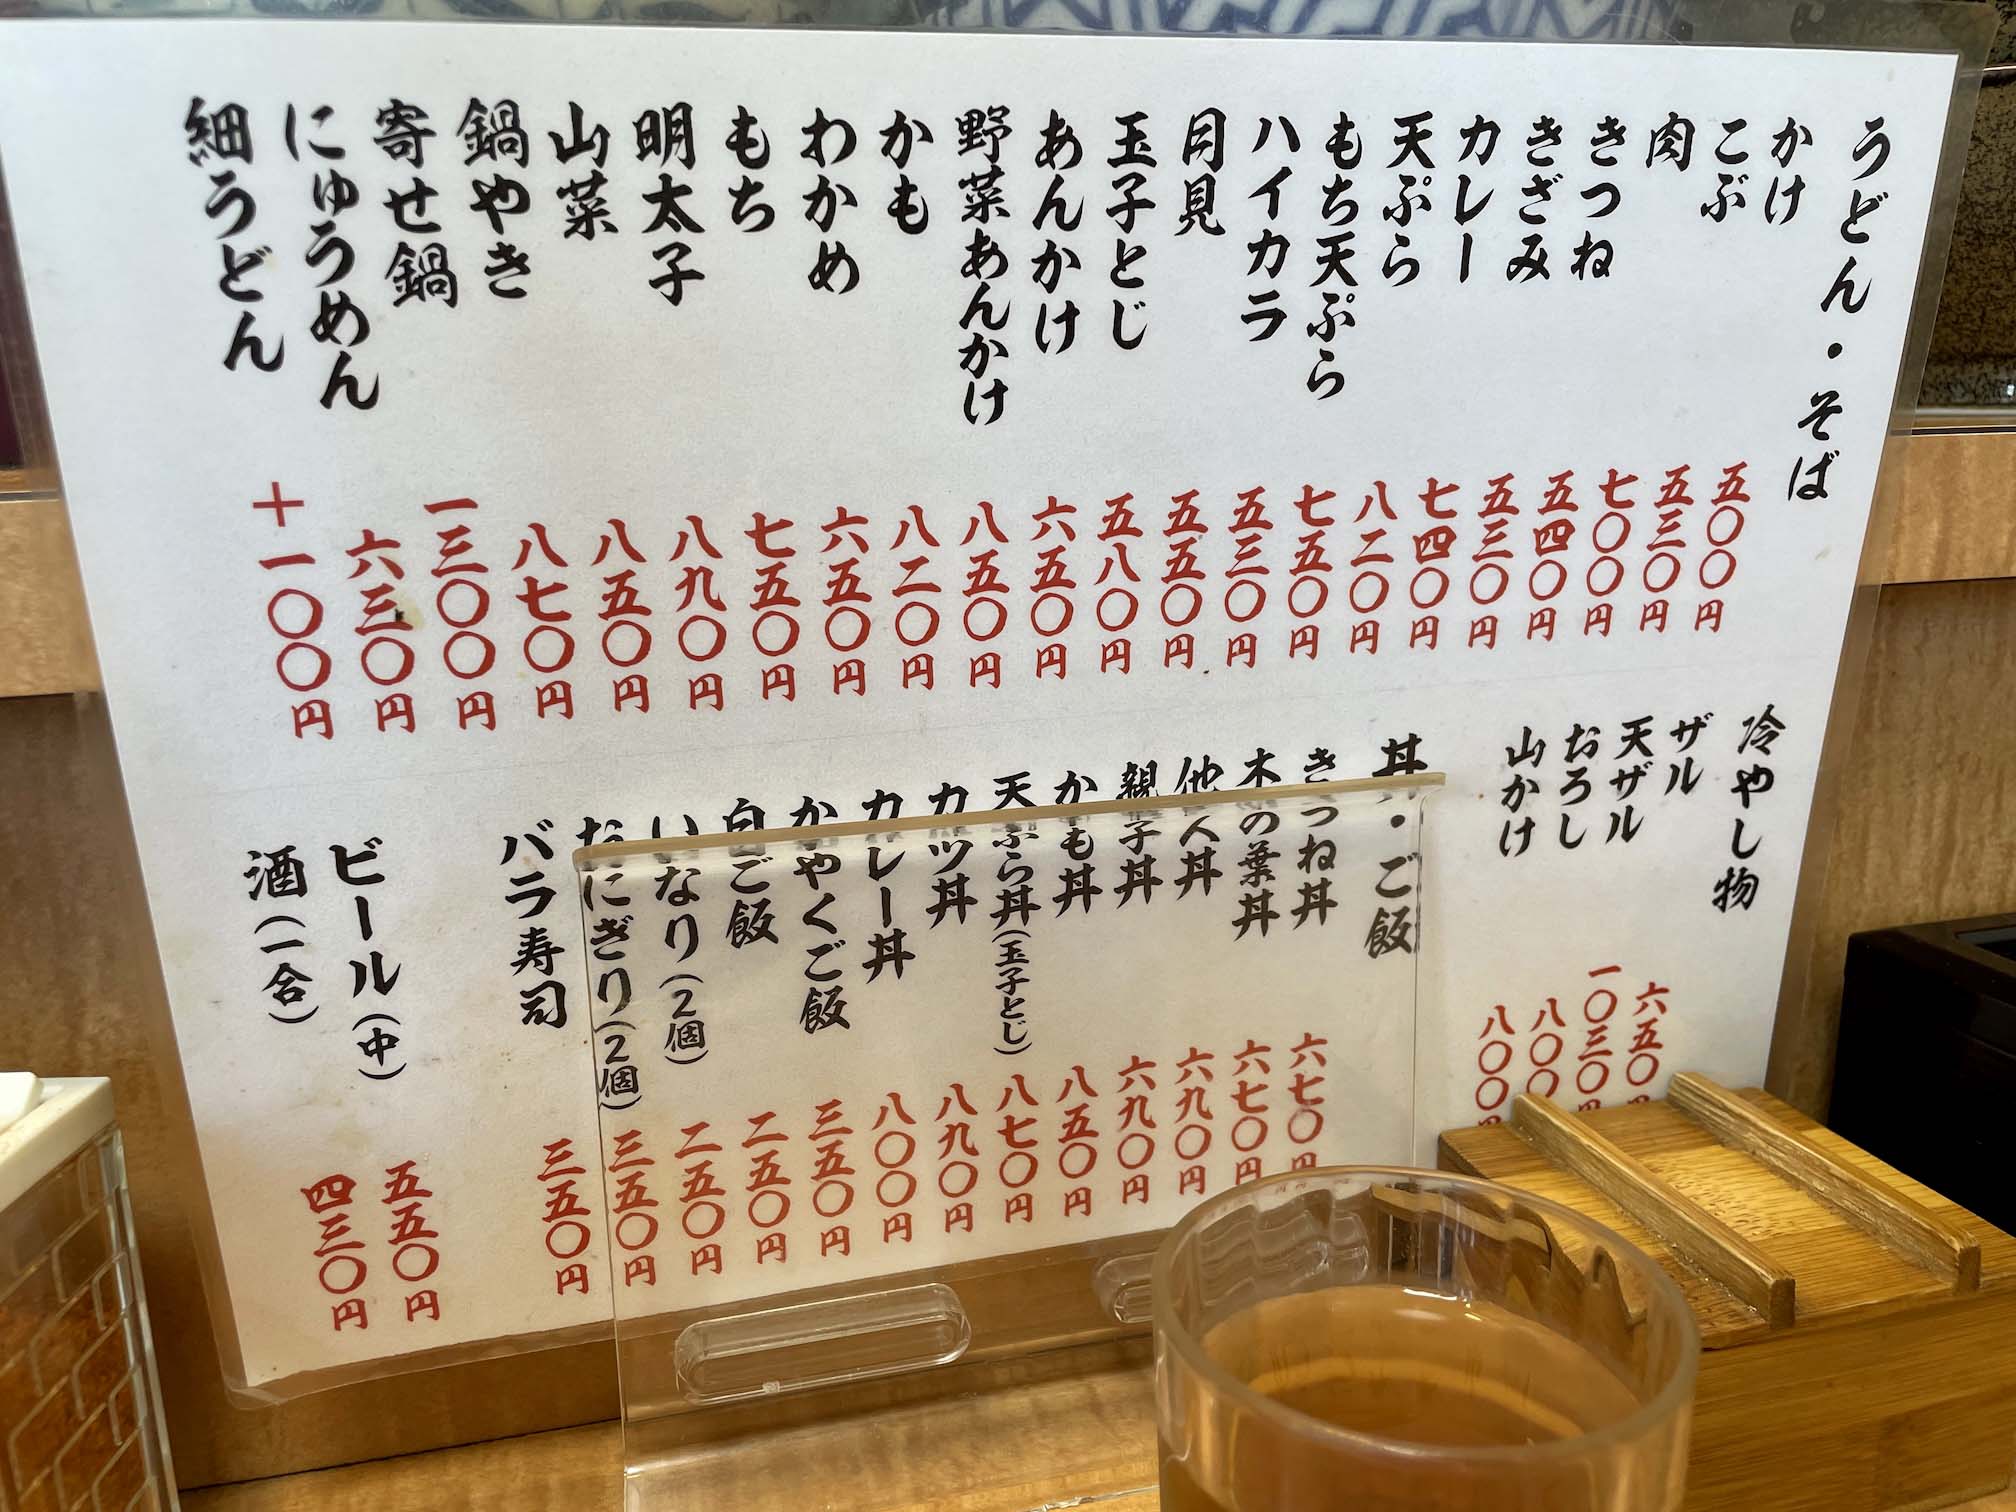 うどん・そば
かけ 五〇〇円
こぶ 五三〇円
肉 七〇〇円
きつね 五四〇円
きざみ 五三〇円
カレー 七四〇円
天ぷら 八二〇円
もち天ぷら 七五〇円
ハイカラ 五三〇円
月見 五五〇円
玉子とじ 五八〇円
あんかけ 六五〇円
野菜あんかけ 八五〇円
かも 八二〇円
わかめ 六五〇円
もち 七五〇円
明太子 八九〇円
山菜 八五〇円
鍋やき 八七〇円
寄せ鍋 一三〇〇円
にゅうめん 六三〇円
細うどん +一〇〇円
冷やし物
ザル 六五〇円
天ザル 一〇三〇円
おろし 八〇〇
山かけ 八〇〇円
丼・ご飯
きつね丼 六七〇円
木の葉丼 六七〇円
他人丼 六九〇円
親子丼 六九〇円
かも丼 八五〇円
天ぷら丼(玉子とじ) 八七〇円
カツ丼 八九〇円
カレー丼 八〇〇円
かやくご飯 三五〇円
白ご飯 二五〇円
いなり(2個) 二五〇円
おにぎり(2個) 三五〇円
バラ寿司 三五〇円
ビール(中) 五五〇円
酒(一合) 四三〇円